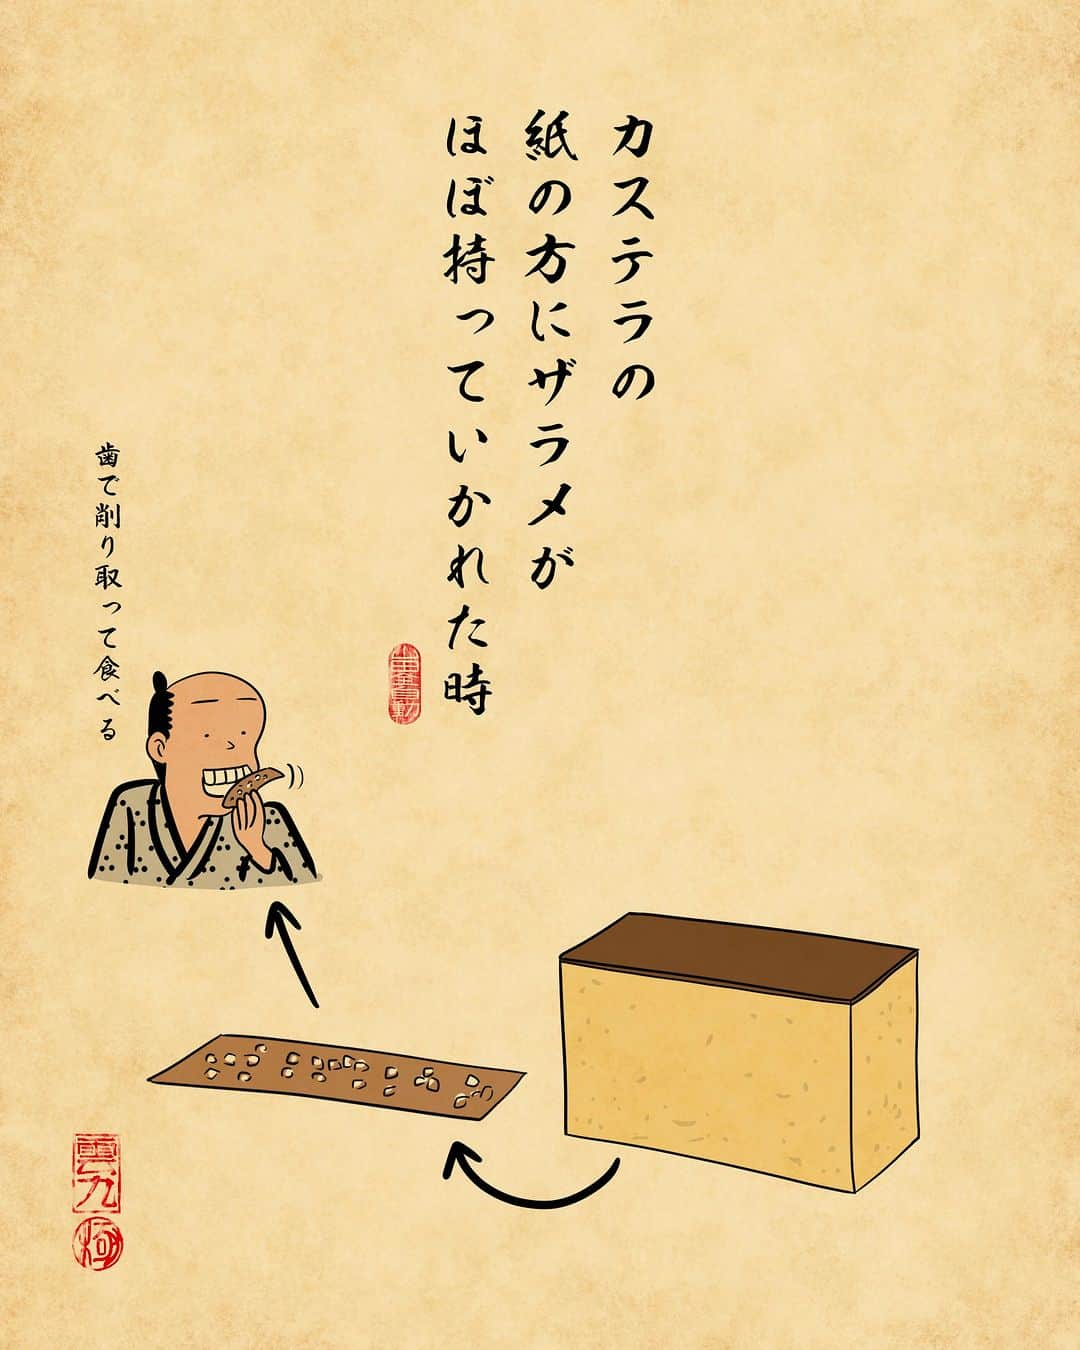 カステラの
紙の方にザラメが
ほぼ持っていかれた時
歯で削り取って食べる